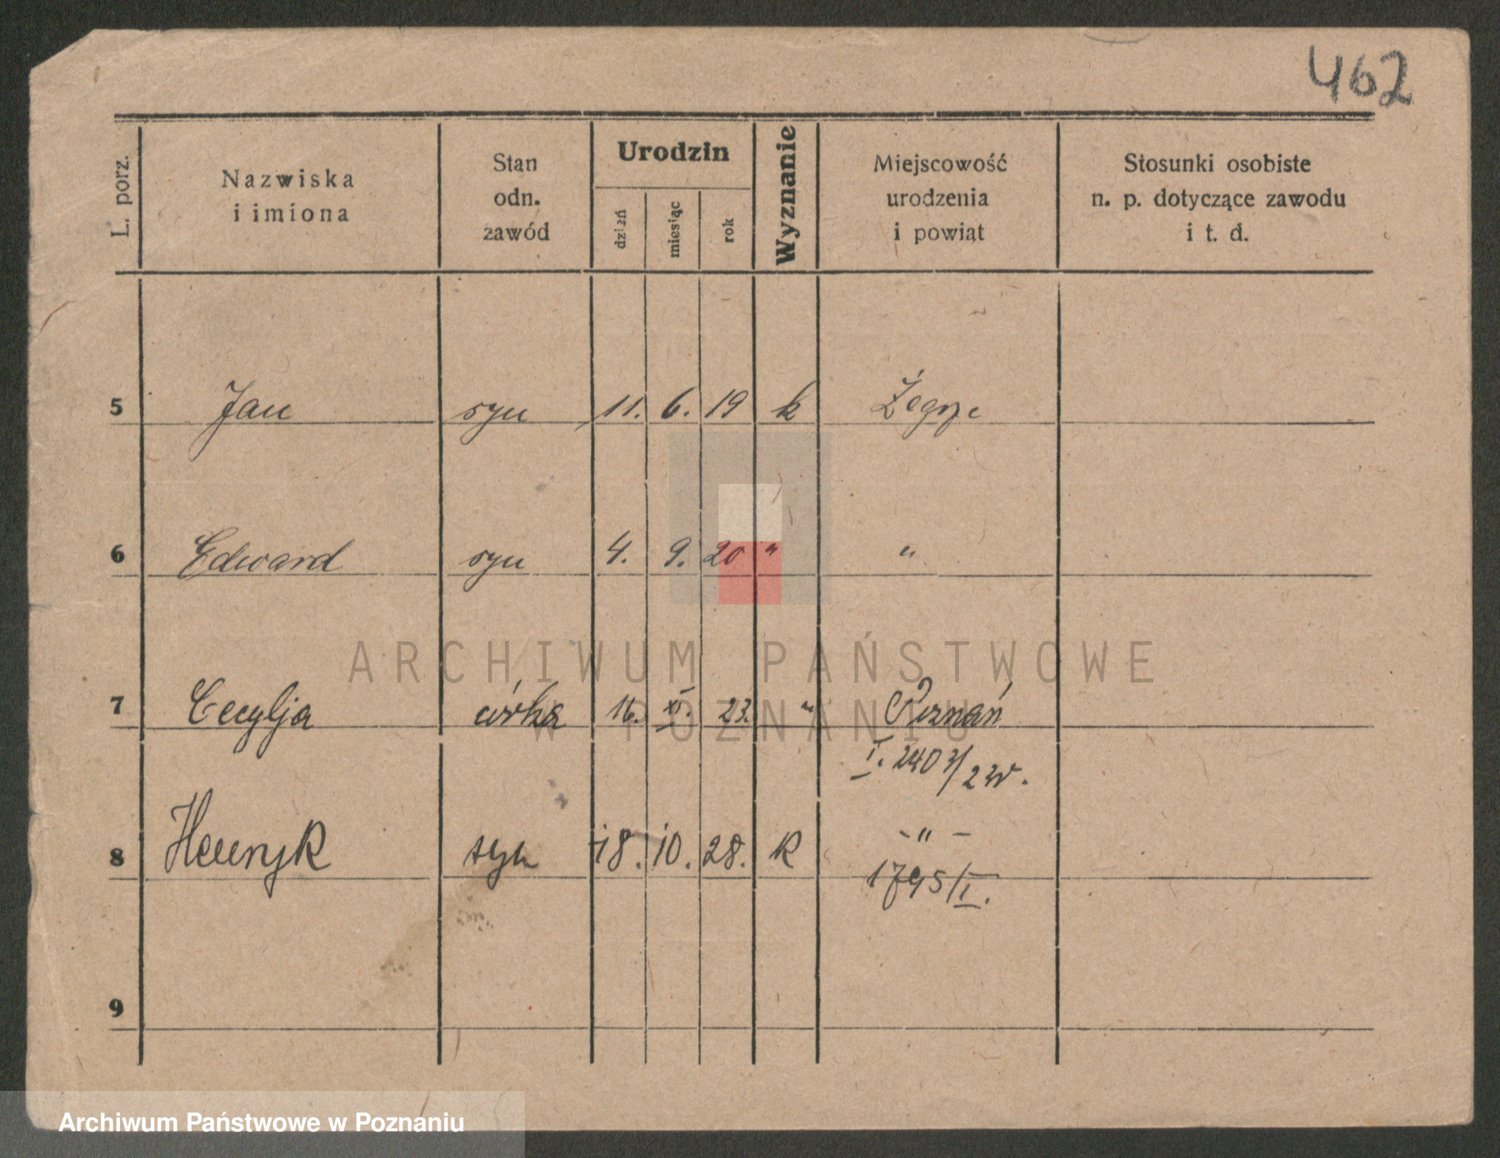 462
L. porz.
Nazwiska
i imiona
Stan
odn.
zawód
Urodzin
dzień
miesiąc
rok
Wyznanie
Miejscowość
urodzenia
i powiat
Stosunki osobiste
n. p. dotyczące zawodu
i t. d.
5 Jan syn 11. 6. 19 k Żegrze
6 Edward syn 4. 9. 20 " "
ARCHIWUM PAŃSTWOWE
7 Cecylja córka 16. XI. 23. " Poznań
W POZNANIU
I. 2403/23r.
8 Henryk syn 18. 10. 28. k - " -
1795/I.
9
Archiwum Państwowe w Poznaniu